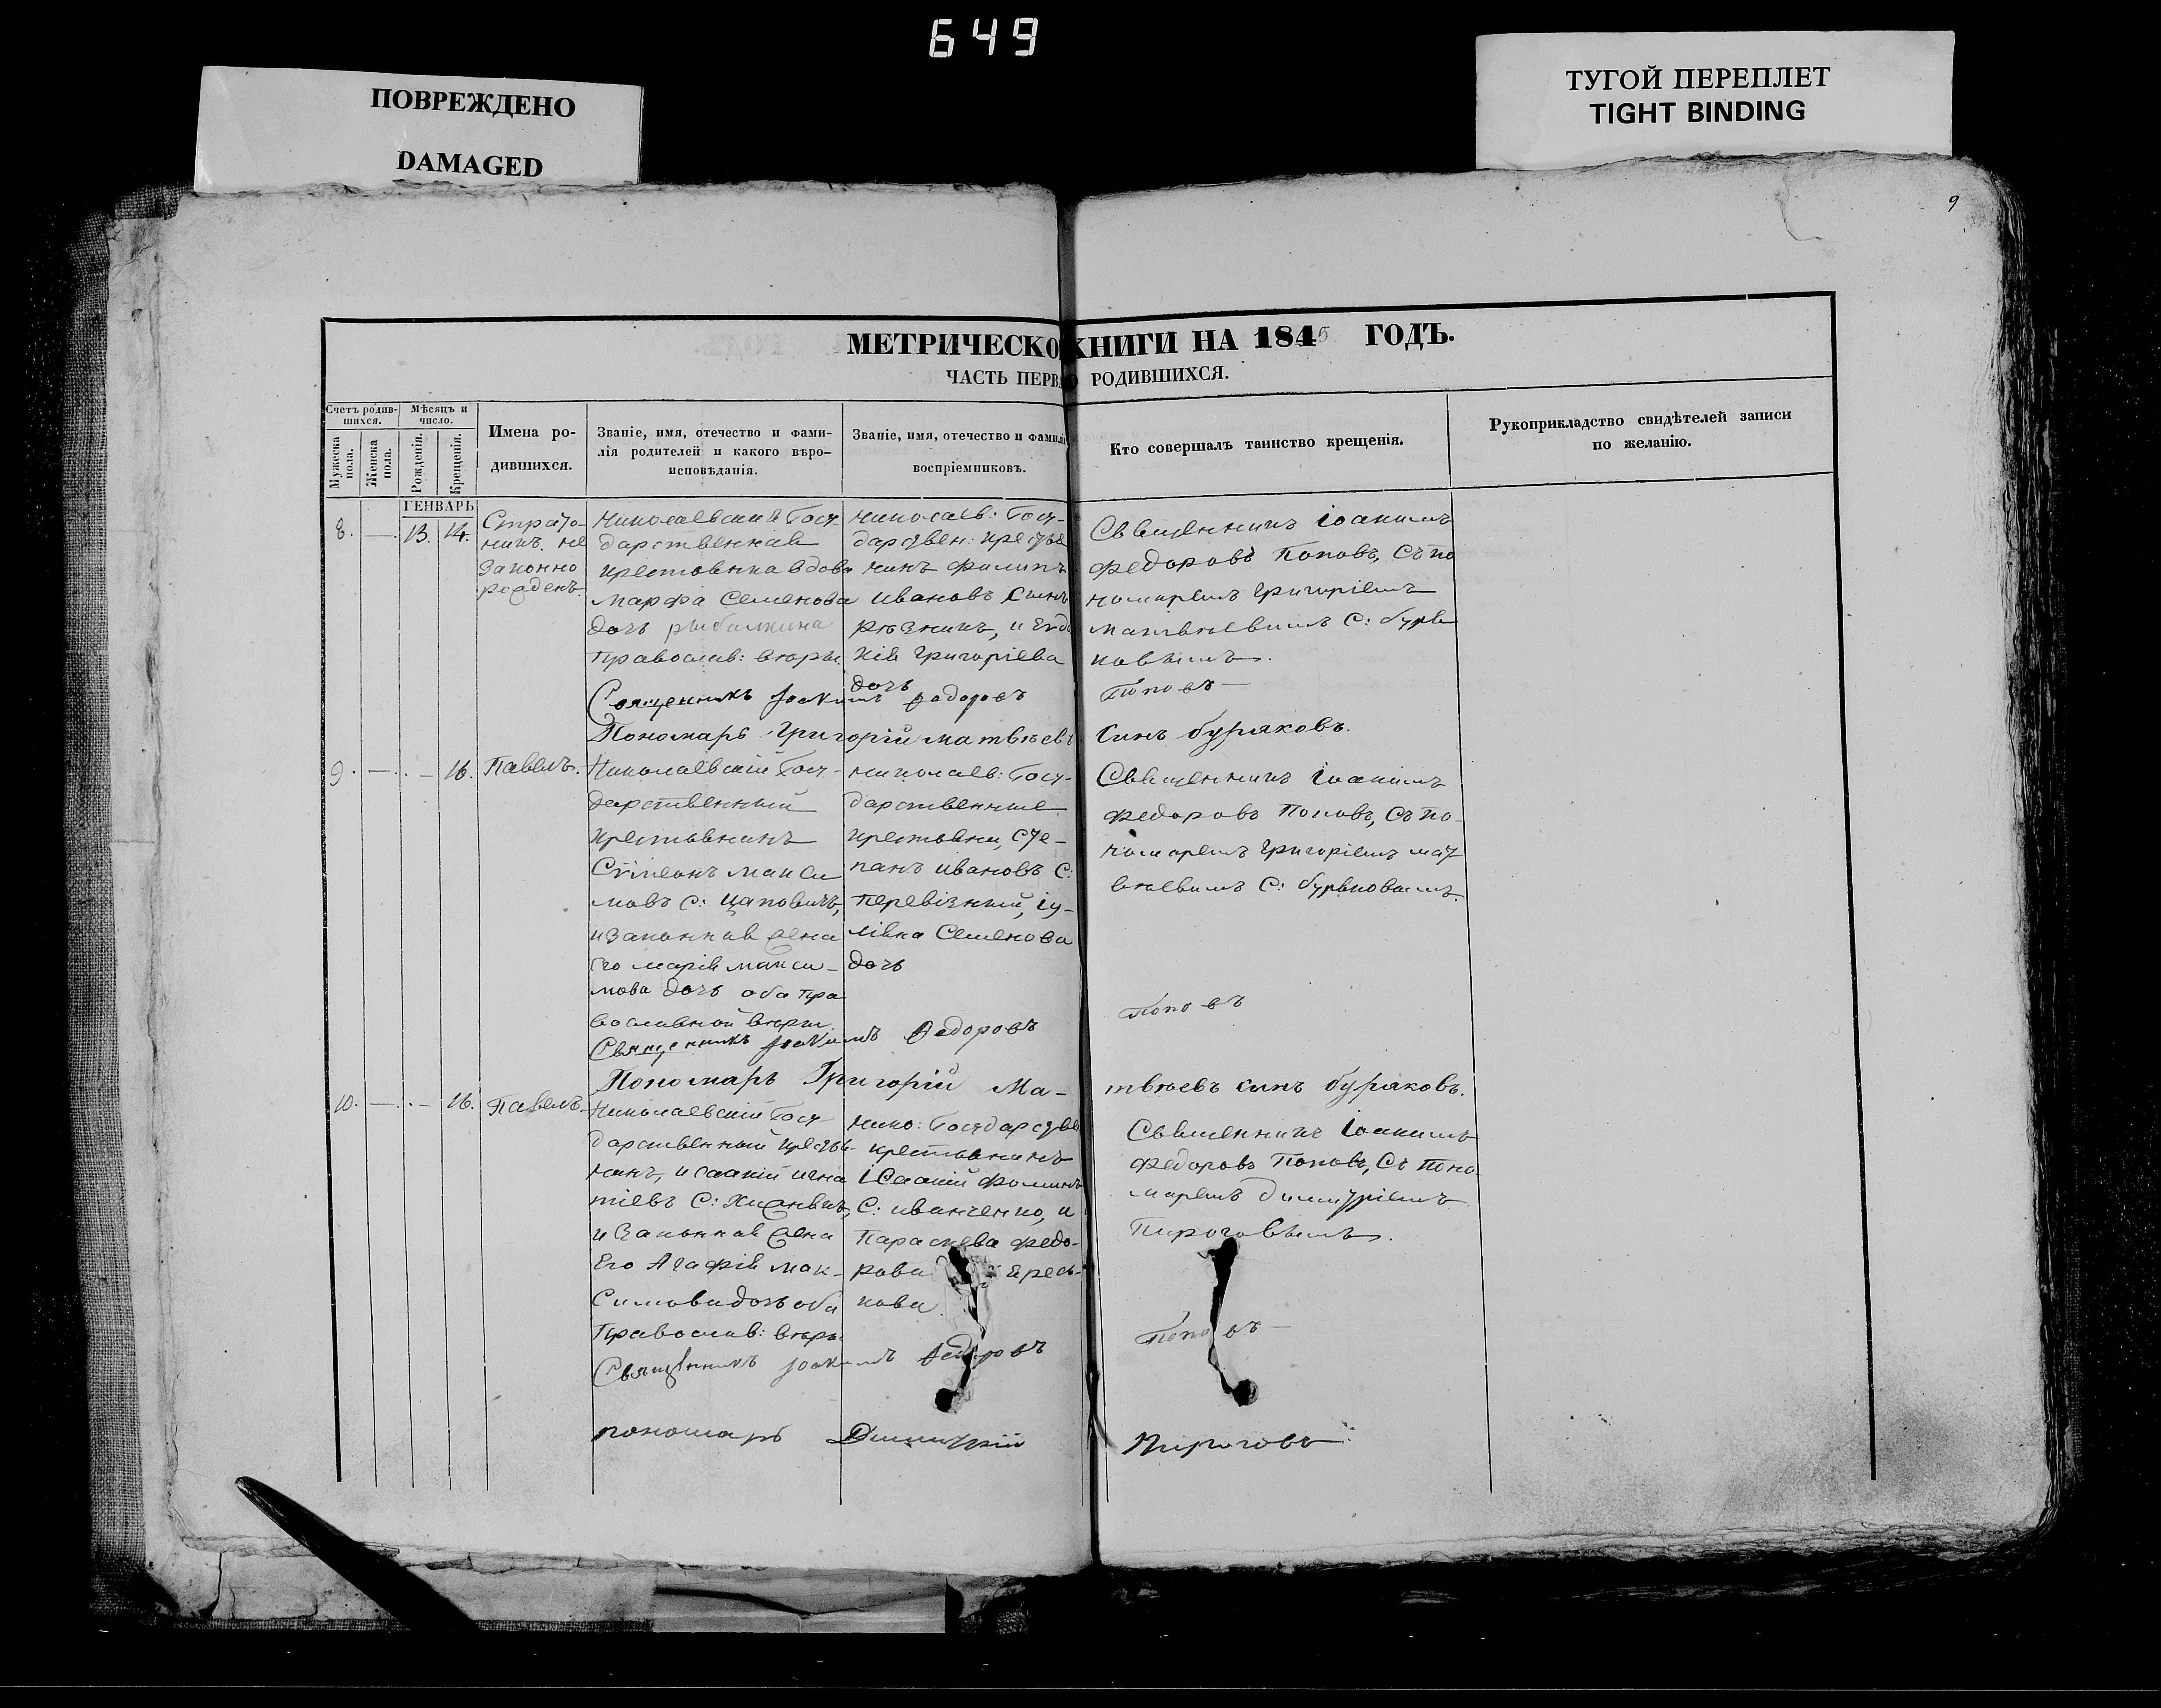 649
ПОВРЕЖДЕНО
DAMAGED
ТУГОЙ ПЕРЕПЛЕТ
TIGHT BINDING
9
МЕТРИЧЕСКО КНИГИ НА 1845 ГОДЪ.
ЧАСТЬ ПЕРВА О РОДИВШИХСЯ.
Счетъ родив-
шихся.
Мужеска пола.
Женска пола.
Мѣсяцъ и
число.
Рожденія.
Крещенія.
Имена ро-
дившихся.
Званіе, имя, отечество и фами-
лія родителей и какого вѣро-
исповѣданія.
Званіе, имя, отечество и фамилі
воспріемниковъ.
Кто совершалъ таинство крещенія.
Рукоприкладство свидѣтелей записи
по желанію.
ГЕНВАРЬ
8. — 13. 14.
Страто-
никъ. не
законно
рожденъ.
Николаевская Госу
дарственная
крестьянка вдова
Марфа Семенова
дочь рыбалкина
Православ: вѣры
Николаев: Госу-
дарствен: крестья
нинъ Филипъ
Ивановъ сынъ
Рѣзникъ, и Евдо
кія Григоріева
дочь
Священникъ Іоакимъ
Федоровъ Поповъ, съ по
номаремъ Григоріемъ
Матвѣевымъ с: буря
ковымъ.
Священникъ Іоакимъ Федоровъ Поповъ
Пономарь Григорій Матвѣевъ сынъ буряковъ.
9. — . — 16. Павелъ.
Николаевскій Госу-
дарственный
крестьянинъ
Сѵмеонъ Макси
мовъ с: Цаповичъ,
и законная жена
его Марія Макси-
мова дочь оба пра
вославной вѣры.
Николаев: Госу-
дарственные
крестьяни, Сте-
панъ Ивановъ с:
Перевізный, Іу-
ліяна Семенова
дочь
Священникъ Іоакимъ
Федоровъ Поповъ, съ по-
номаремъ Григоріемъ Мат
вѣевымъ с: буряковымъ.
Священникъ Іоакимъ Федоровъ Поповъ
Пономарь Григорій Ма- твѣевъ сынъ буряковъ.
10. — . — 16. Павелъ.
Николаевскій Госу
дарственный крестья-
нинъ, Исаакій Игна
тіевъ с:
и законная жена
Его Агафія Мак-
симова дочь оба
Православ: вѣры
Нико: Государстве
крестьянинъ
Ісаакій Фоминъ
с: Иванченко, и
Параскева Федо-
рова
кова
Священникъ Іоакимъ
Федоровъ Поповъ, съ поно
маремъ Димитріемъ
Пироговымъ.
Священникъ Іоакимъ Федоровъ Поповъ
пономарь Димитрій Пироговъ